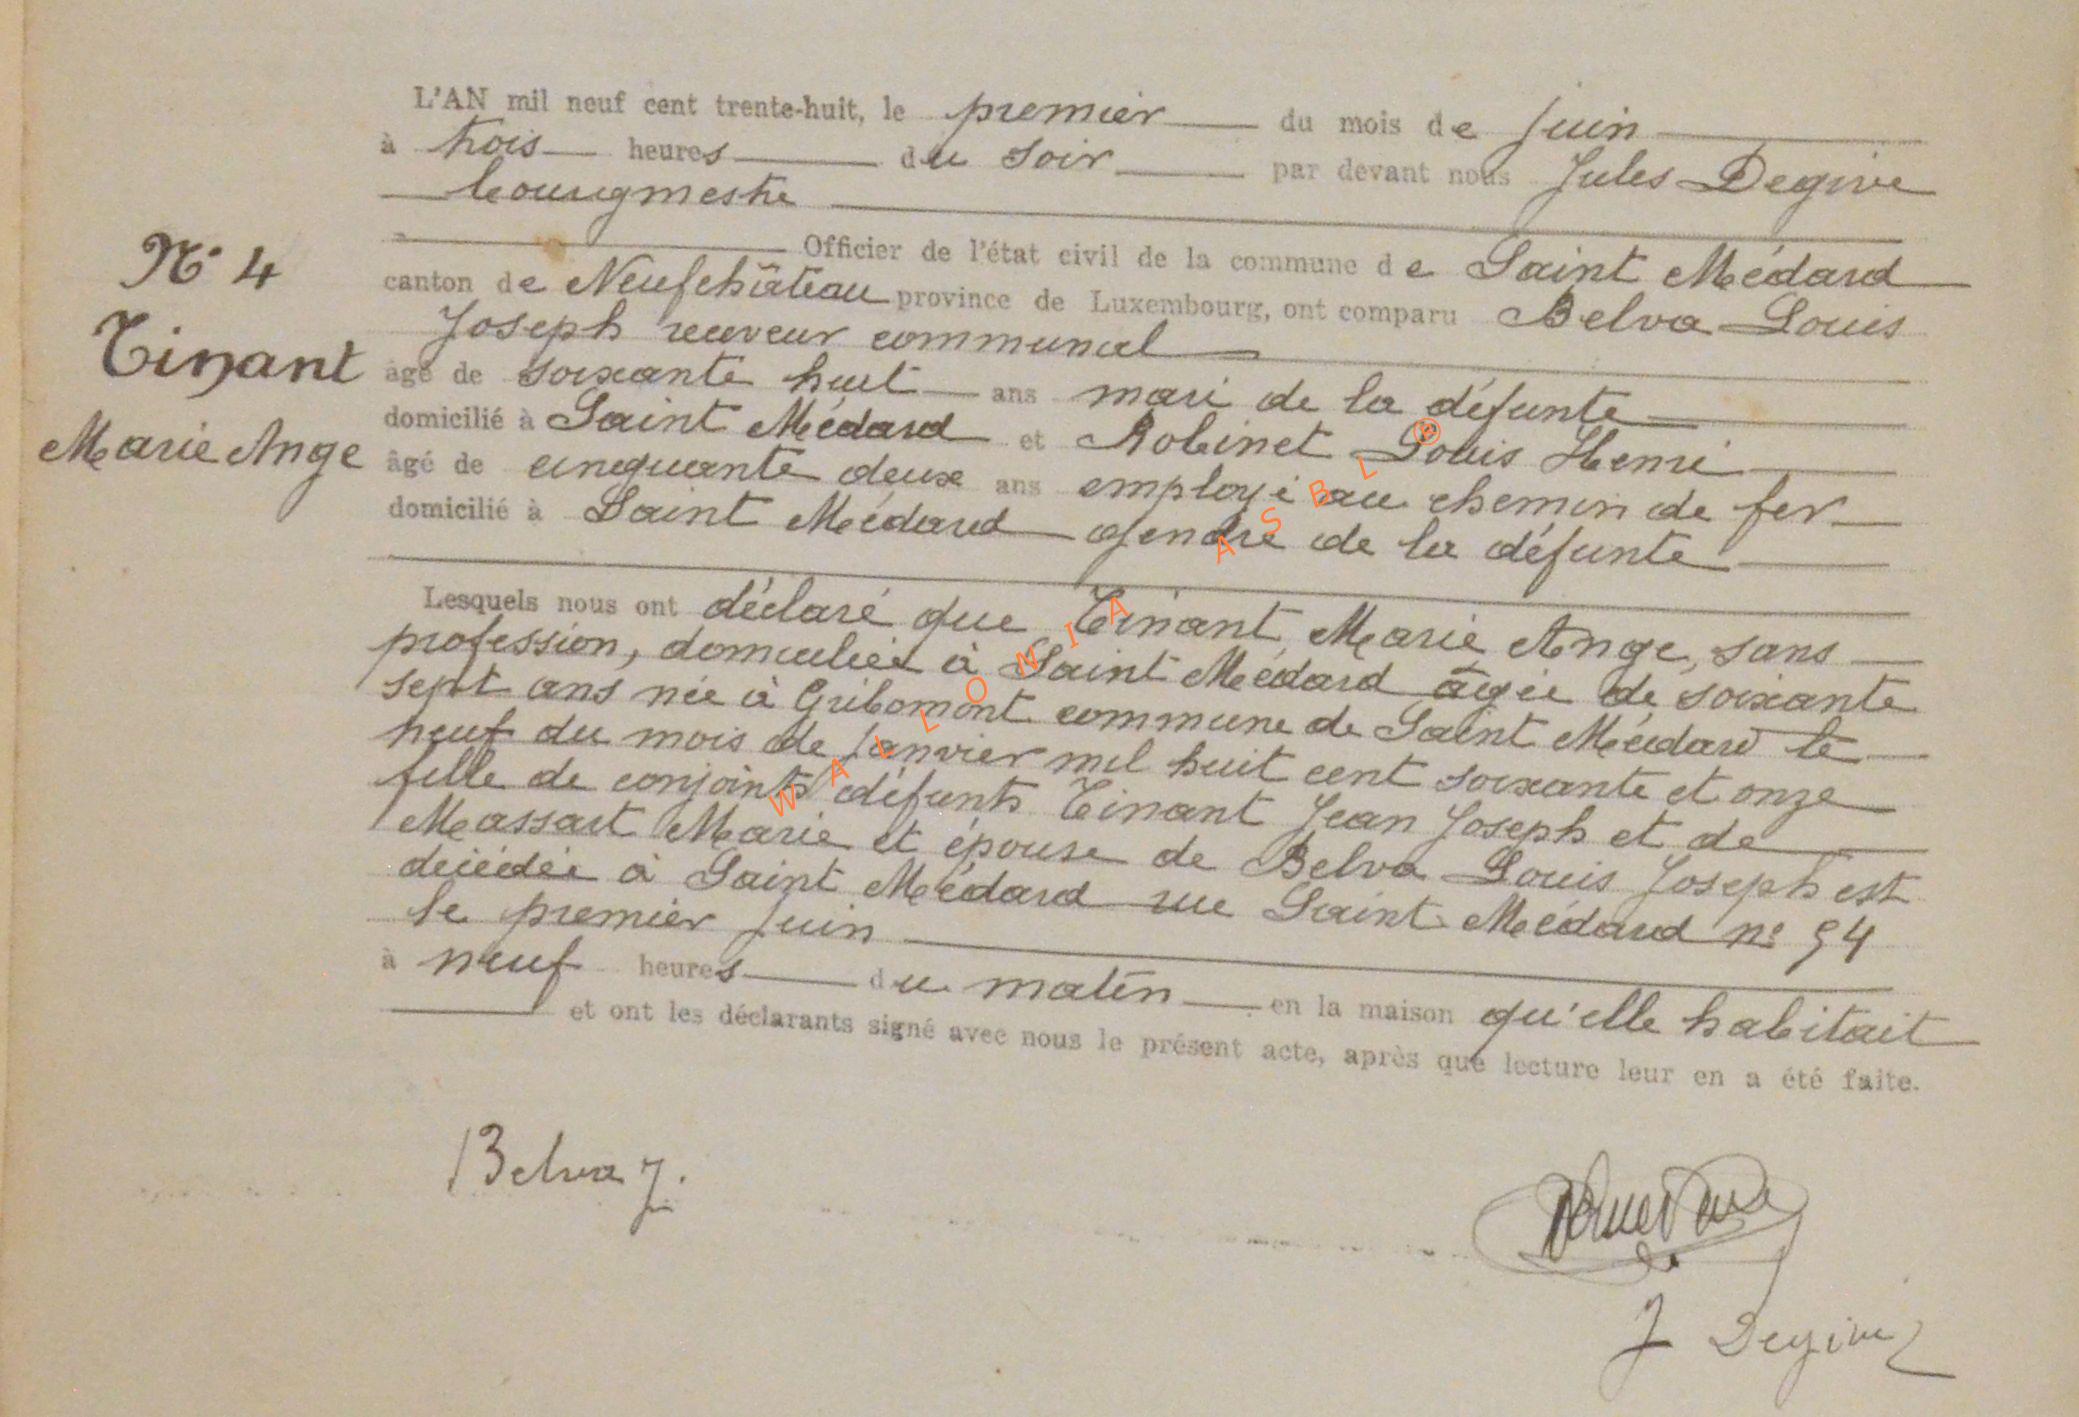 L'AN mil neuf cent trente-huit, le premier du mois de juin
à trois heures du soir par devant nous Jules Degive
bourgmestre
Officier de l'état civil de la commune de Saint Médard
canton de Neufchâteau province de Luxembourg, ont comparu Belva Louis
Joseph receveur communal
âgé de soixante huit ans mari de la défunte
domicilié à Saint Médard et Robinet Louis Henri
âgé de cinquante deux ans employé au chemin de fer
domicilié à Saint Médard gendre de la défunte
N° 4
Tinant
Marie Ange
Lesquels nous ont déclaré que Tinant Marie Ange, sans
profession, domiciliée à Saint Médard âgée de soixante
sept ans née à Gribomont commune de Saint Médard le
neuf du mois de Janvier mil huit cent soixante et onze
fille de conjoints défunts Tinant Jean Joseph et de
Massart Marie et épouse de Belva Louis Joseph est
décédée à Saint Médard rue Saint Médard n° 54
le premier juin
à neuf heures du matin en la maison qu'elle habitait
et ont les déclarants signé avec nous le présent acte, après que lecture leur en a été faite.
Belva J.
J Degive
WALLONIA ASBL ®